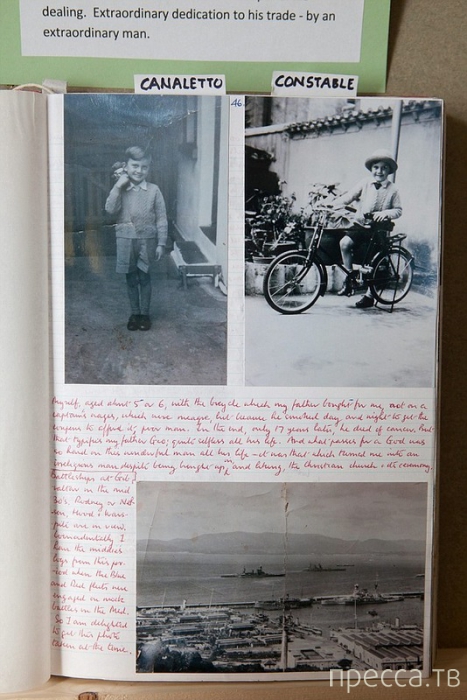 dealing.  Extraordinary dedication to his trade - by an
extraordinary man.
CANALETTO
CONSTABLE
46.
Myself, aged about 5 or 6, with the bicycle which my father bought for me, not on a
captain's wages, which were meagre, but because he smoked day and night to get the
coupons to afford it, poor man. In the end, only 17 years later, he died of cancer. But
that typifies my father Gio; quite selfless all his life. And what passes for a God was
so hard on this wonderful man all his life - it was that which turned me into an
irreligious man despite being brought up in and liking, the Christian church & its ceremony.
Battleships at Gib,
rather in the mid
30's. Rodney or Nel-
son, Hood &
are in view.
Coincidentally I
have the
logs from this per-
iod when the Blue
and Red fleets were
engaged on mock
battles in the Med.
So I am delighted
to get this photo
taken at the time.
пресса.тв